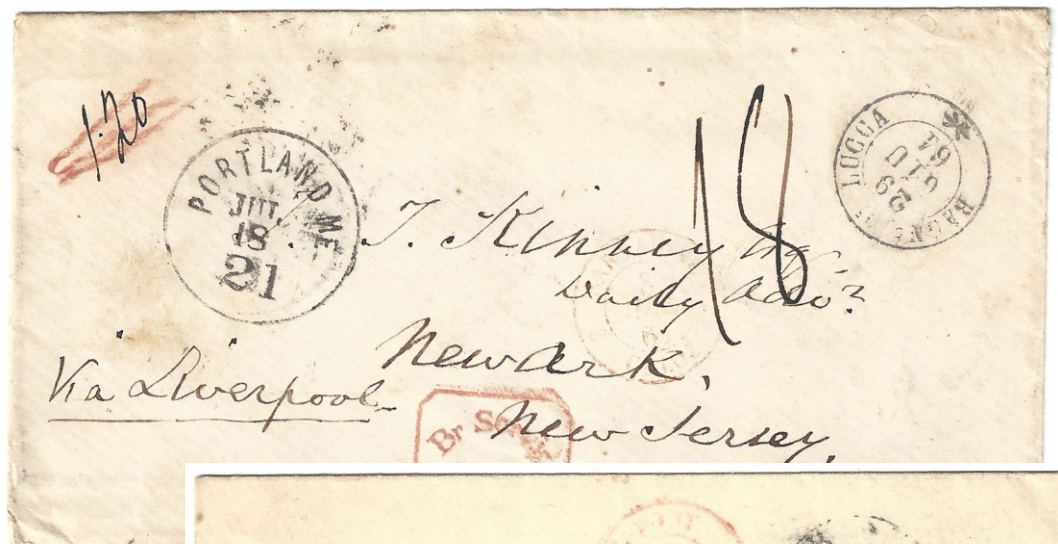 1.20
PORTLAND ME.
JUL
18
21
18
LUCCA
BAGNI
29
GIU
64
T. Kinney Esq.
Daily Adv.
Newark,
New Jersey,
Via Liverpool
Br Serv